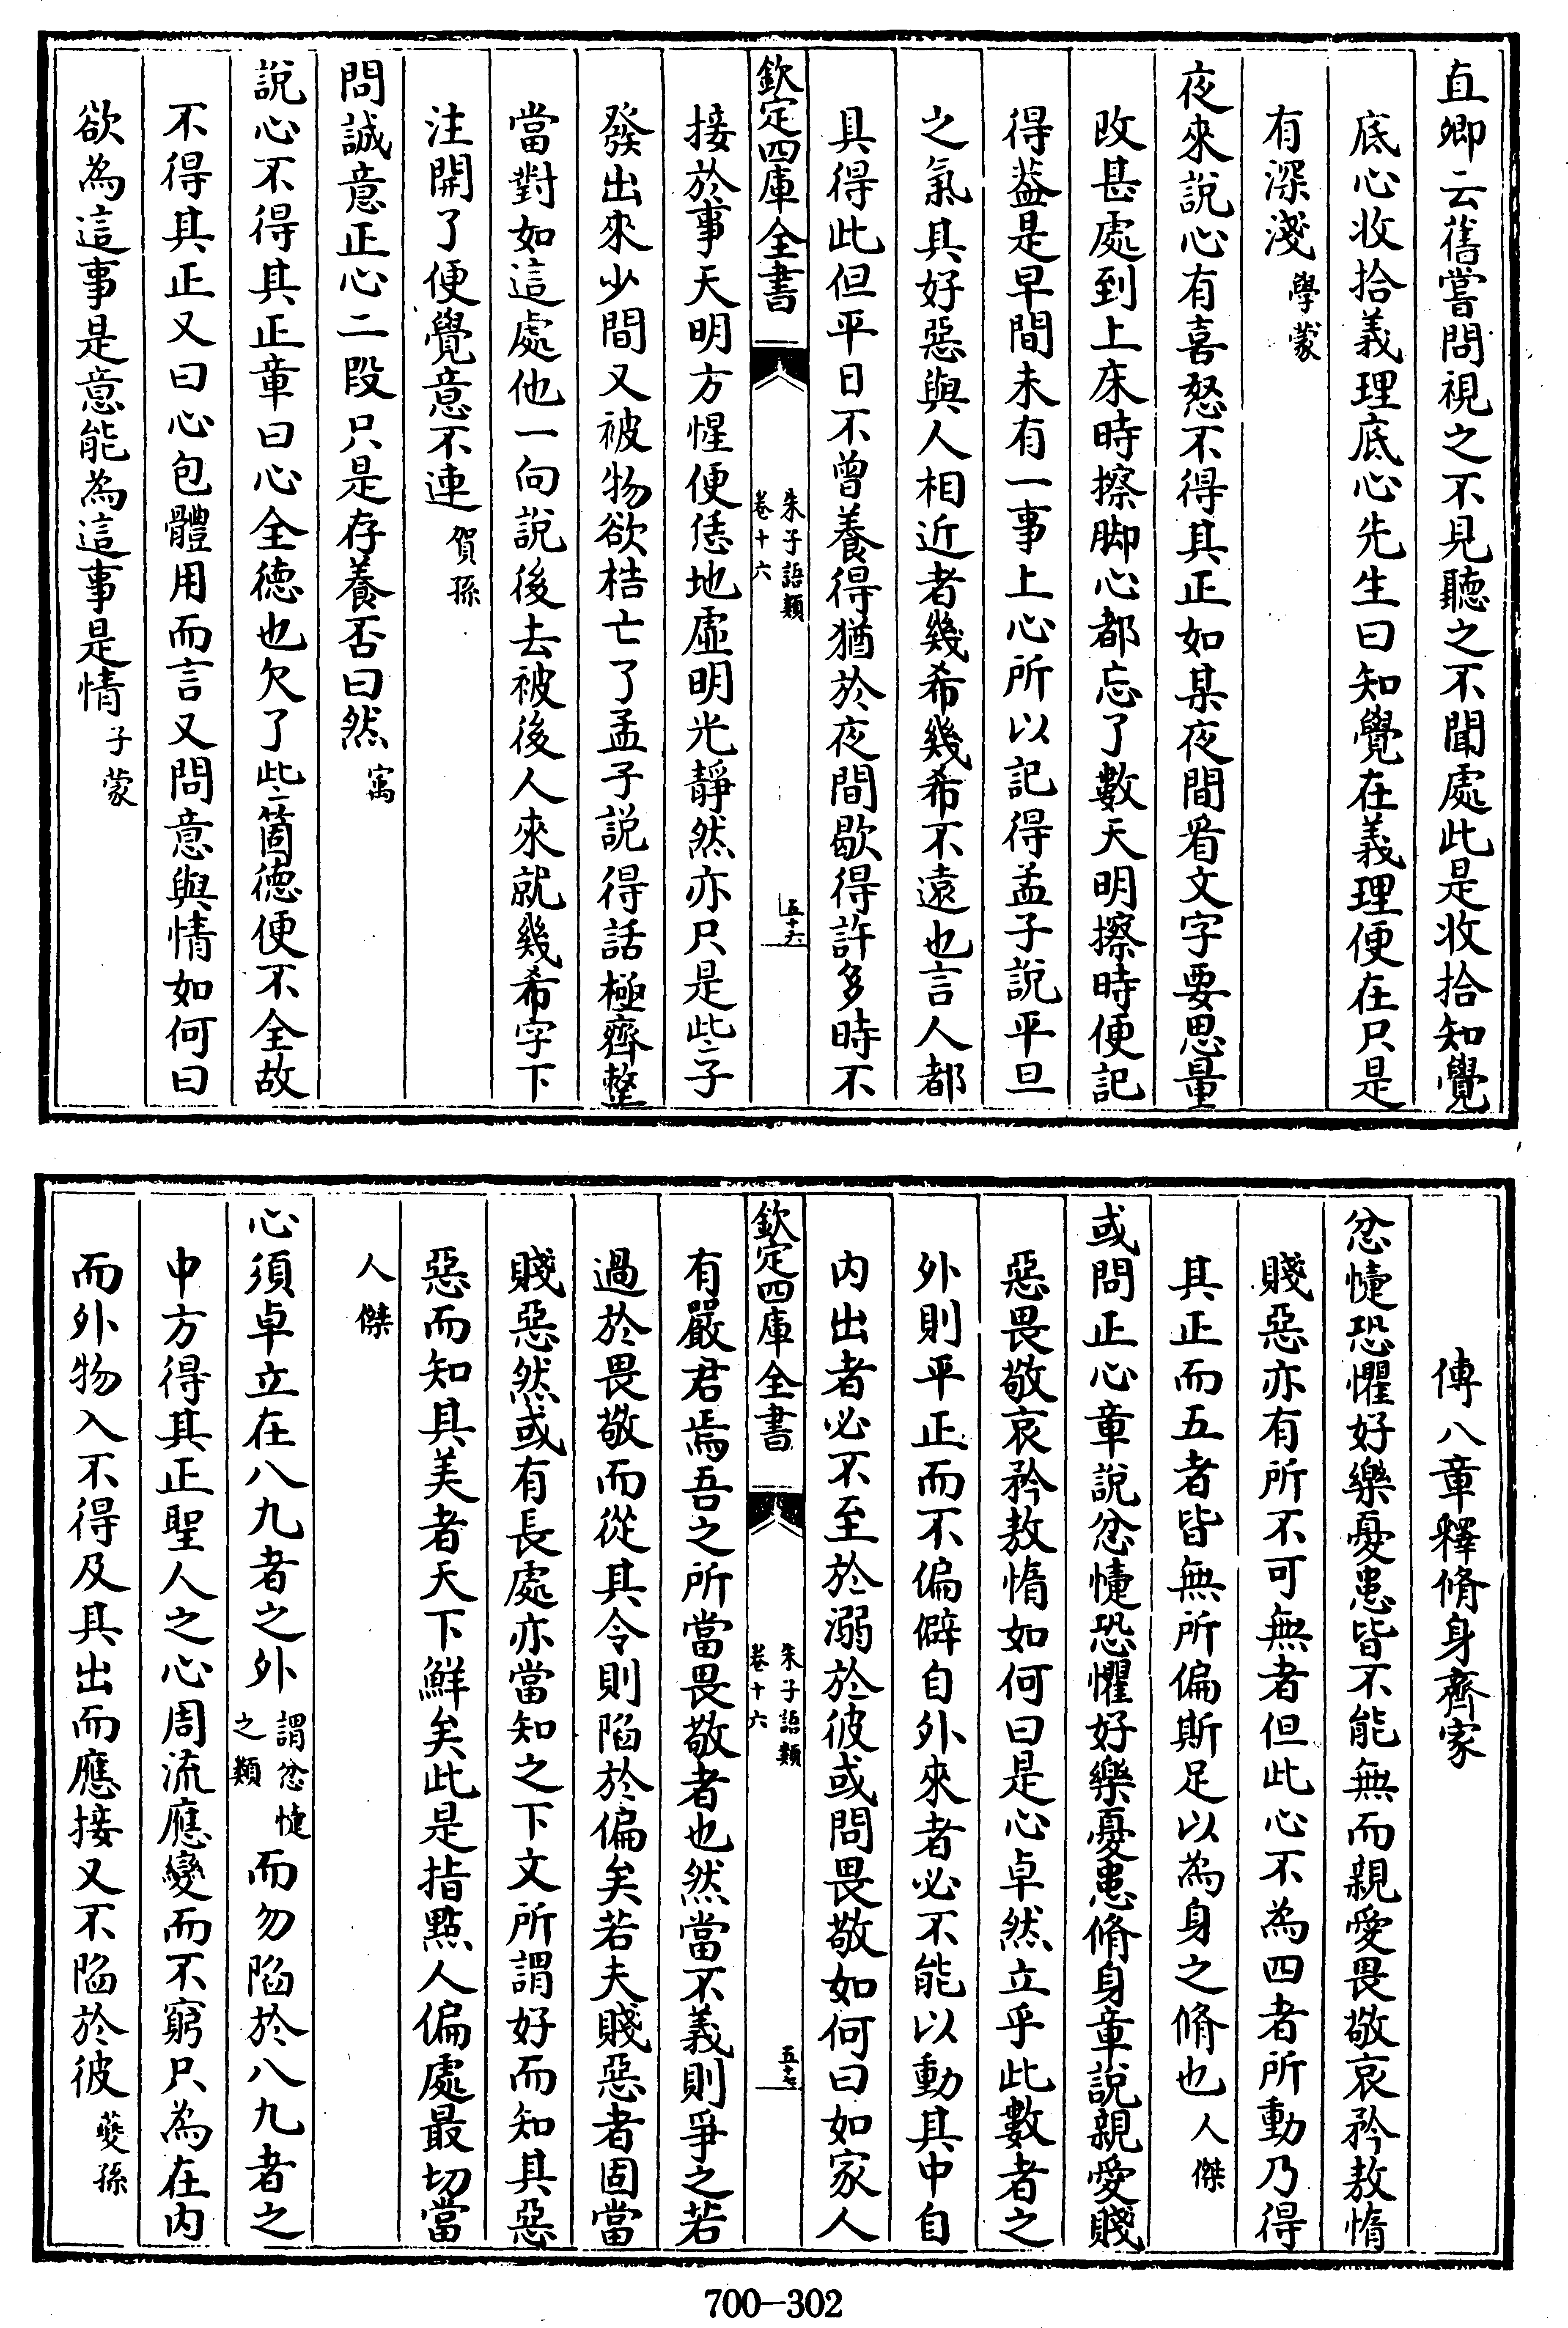 直卿云舊嘗問視之不見聽之不聞處此是收拾知覺
底心收拾義理底心先生曰知覺在義理便在只是
有深淺學蒙
夜來說心有喜怒不得其正如某夜間看文字要思量
改甚處到上床時擦脚心都忘了數天明擦時便記
得葢是早間未有一事上心所以記得孟子說平旦
之氣其好惡與人相近者幾希幾希不遠也言人都
具得此但平日不曾養得猶於夜間歇得許多時不
欽定四庫全書
朱子語類
卷十六
五十六
接於事天明方惺便恁地虛明光靜然亦只是些子
發出來少間又被物欲梏亡了孟子說得話極齊整
當對如這處他一向說後去被後人來就幾希字下
注開了便覺意不連賀孫
問誠意正心二段只是存養否曰然㝢
說心不得其正章曰心全德也欠了些箇德便不全故
不得其正又曰心包體用而言又問意與情如何曰
欲為這事是意能為這事是情子蒙
傳八章釋脩身齊家
忿懥恐懼好樂憂患皆不能無而親愛畏敬哀矜敖惰
賤惡亦有所不可無者但此心不為四者所動乃得
其正而五者皆無所偏斯足以為身之脩也人傑
或問正心章說忿懥恐懼好樂憂患脩身章說親愛賤
惡畏敬哀矜敖惰如何曰是心卓然立乎此數者之
外則平正而不偏僻自外來者必不能以動其中自
内出者必不至於溺於彼或問畏敬如何曰如家人
欽定四庫全書
朱子語類
卷十六
五十七
有嚴君焉吾之所當畏敬者也然當不義則爭之若
過於畏敬而從其令則陷於偏矣若夫賤惡者固當
賤惡然或有長處亦當知之下文所謂好而知其惡
惡而知其美者天下鮮矣此是指㸃人偏處最切當
人傑
心須卓立在八九者之外謂忿懥之類而勿陷於八九者之
中方得其正聖人之心周流應變而不窮只為在内
而外物入不得及其出而應接又不陷於彼夔孫
700—302